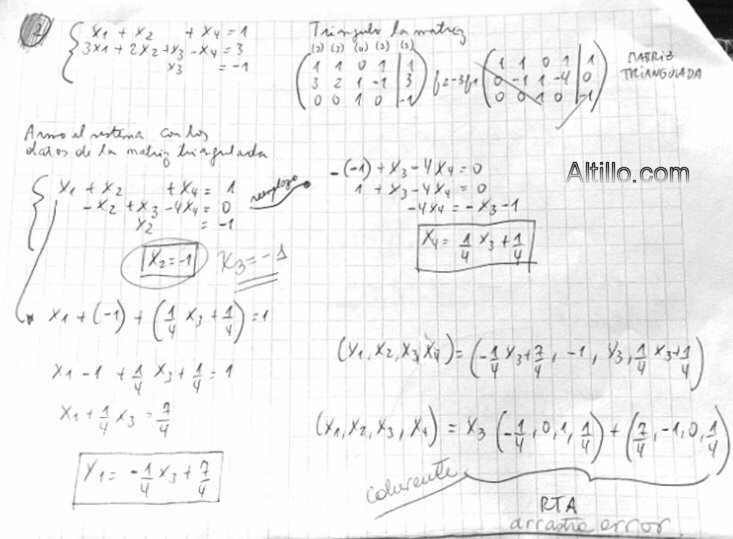 2) { x1 + x2 + x4 = 1
3x1 + 2x2 + x3 - x4 = 3
x3 = -1
Triangulo la matriz
(1) (2) (3) (4) (5)
( 1 1 0 1 | 1 )
( 3 2 1 -1 | 3 ) f2-3f1
( 0 0 1 0 | -1 )
( 1 1 0 1 | 1 )
( 0 -1 1 -4 | 0 )
( 0 0 1 0 | -1 )
MATRIZ
TRIANGULADA
Armo el sistema con los
datos de la matriz triangulada
{ x1 + x2 + x4 = 1
-x2 + x3 - 4x4 = 0 reemplazo
x2 = -1
x2 = -1 x3 = -1
-(-1) + x3 - 4x4 = 0
1 + x3 - 4x4 = 0
-4x4 = -x3 - 1
x4 = 1/4 x3 + 1/4
Altillo.com
* x1 + (-1) + (1/4 x3 + 1/4) = 1
x1 - 1 + 1/4 x3 + 1/4 = 1
x1 + 1/4 x3 = 7/4
x1 = -1/4 x3 + 7/4
(x1, x2, x3, x4) = (-1/4 x3 + 7/4, -1, x3, 1/4 x3 + 1/4)
(x1, x2, x3, x4) = x3 (-1/4, 0, 1, 1/4) + (7/4, -1, 0, 1/4)
coherente
RTA
arrastra error